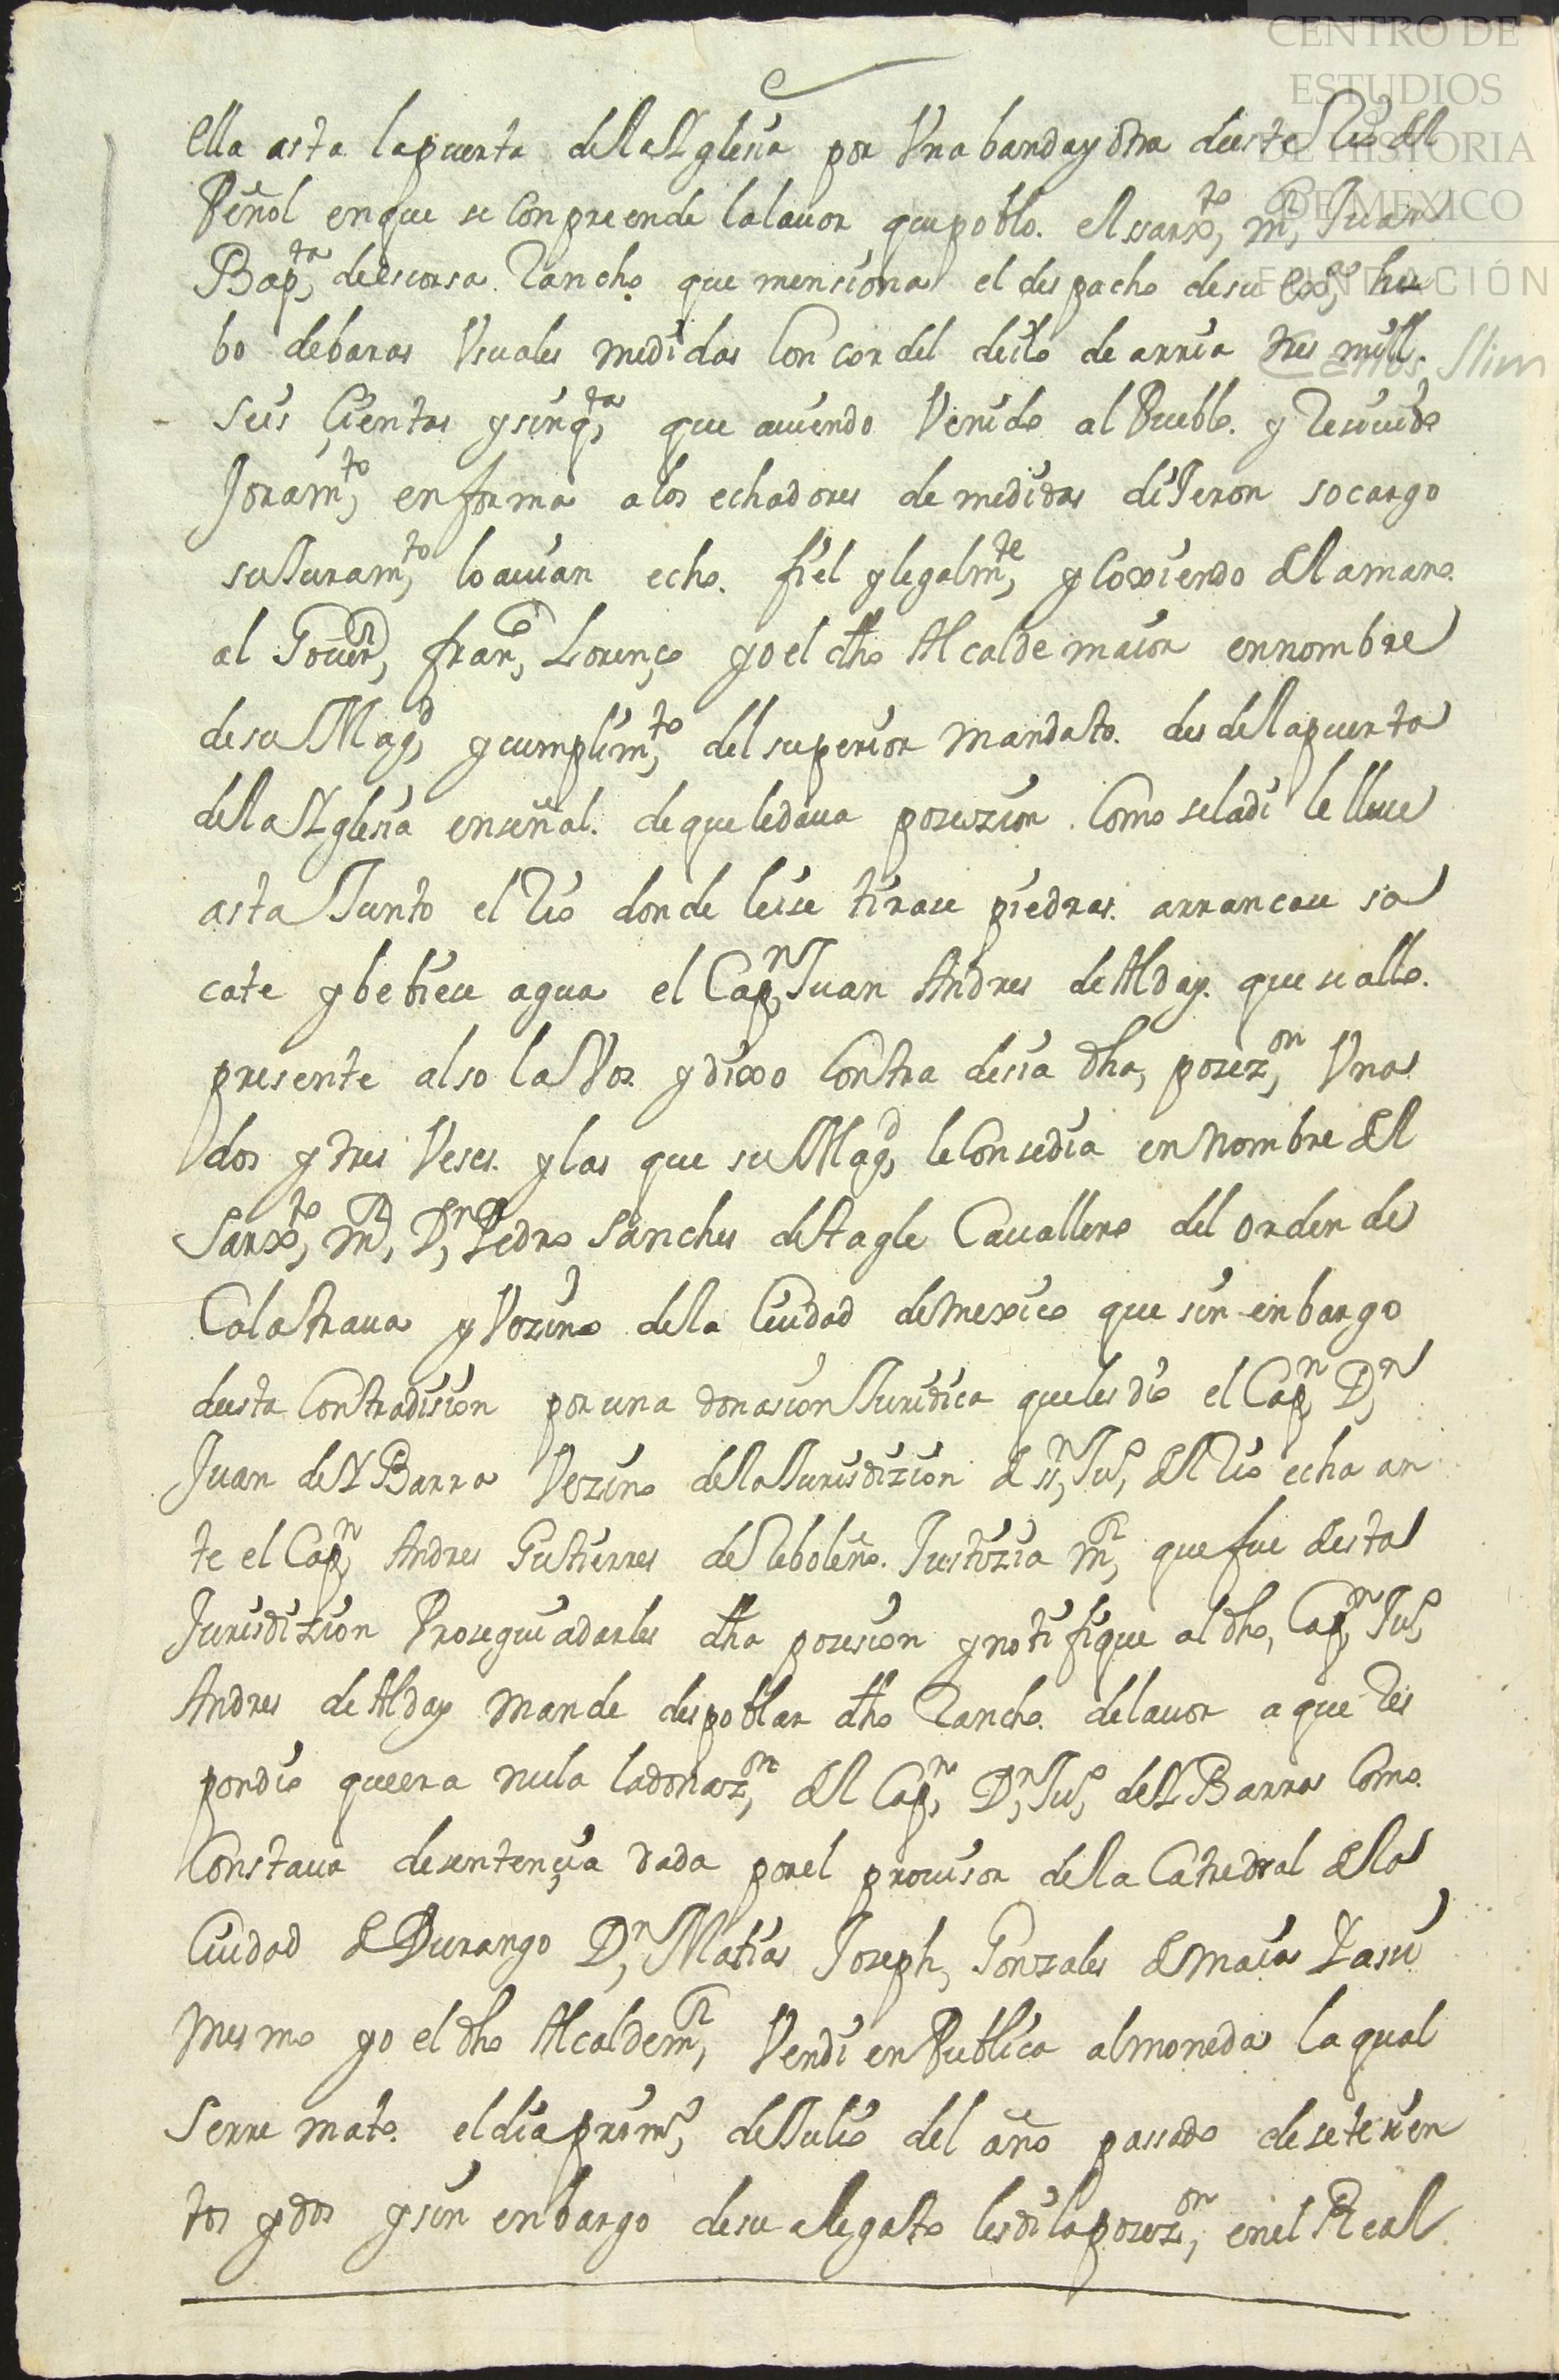 CENTRO DE
ESTUDIOS
DE HISTORIA
DE MEXICO
FUNDACIÓN
Carlos Slim
ella asta lapuerta della Yglesia por Una banda y otra deeste Rio del
Peñol enque se Conpreende lalauor que poblo. el sarxto, mr, Juan
Bapta, de escorsa. Rancho que mensiona el despacho desu exa, hu
bo debaras Usuales medidas Con cordel de ilo de arria tres mill.
Seis Cientas y sinqta, que auiendo Venido al Pueblo. y Resiuido
Joramto, en forma a los echadores de medidas diJeron so cargo
su Juramto, lo auian echo. fiel y legalmte, y Coxiendo de la mano.
al Gouerr, franco, Lorenço yo el dho Alcalde maior en nombre
de su Magd, y cumplimto, del superior mandato. desde la puerta
de la Yglesia en señal. de que le daua posezion. Como se la di le lleue
asta Junto el Rio donde leise tirase piedras. arrancase sa
cate y bebiese agua el Capn, Juan Andres de Alday. que se allo.
presente also la Vos y dixo Contra desia dha, posezon, Unas
dos y tres Veses. y las que su Magd, le Consedia en nombre del
Sarxto, mr, Dn, Pedro Sanches de tagle Cauallero del orden de
Calatraua y Vezino de la Ciudad de mexico que sin enbargo
deesta Contradision por una donasion Juridica que les dio el Capn, Dn,
Juan de Y Barra Vezino de la Jurisdizion de sn, Juo, del Rio echa an
te el Capn, Andres Gutierres de Reboleño. Justizia mr, que fue desta
Jurisdizion Prosegui a darles dha posesion y notifique al dho, Capn, Juo,
Andres de Alday mande despoblar dho Rancho. de lauor a que Res
pondio que era nula la donazon, del Capn, Dn, Juo, de Y Barra Como.
Constaua de sentençia dada por el prouisor de la Catredral de la
Ciudad de Durango Dn, Matias Joseph, Gonzales de maia Y asi
mesmo yo el dho Alcalde mr, Vendi en Publica almoneda la qual
se rremato. el dia primo, de Julio del año passado de setesien
tos y dos y sin enbargo de su alegato les di la posezon, en el Real